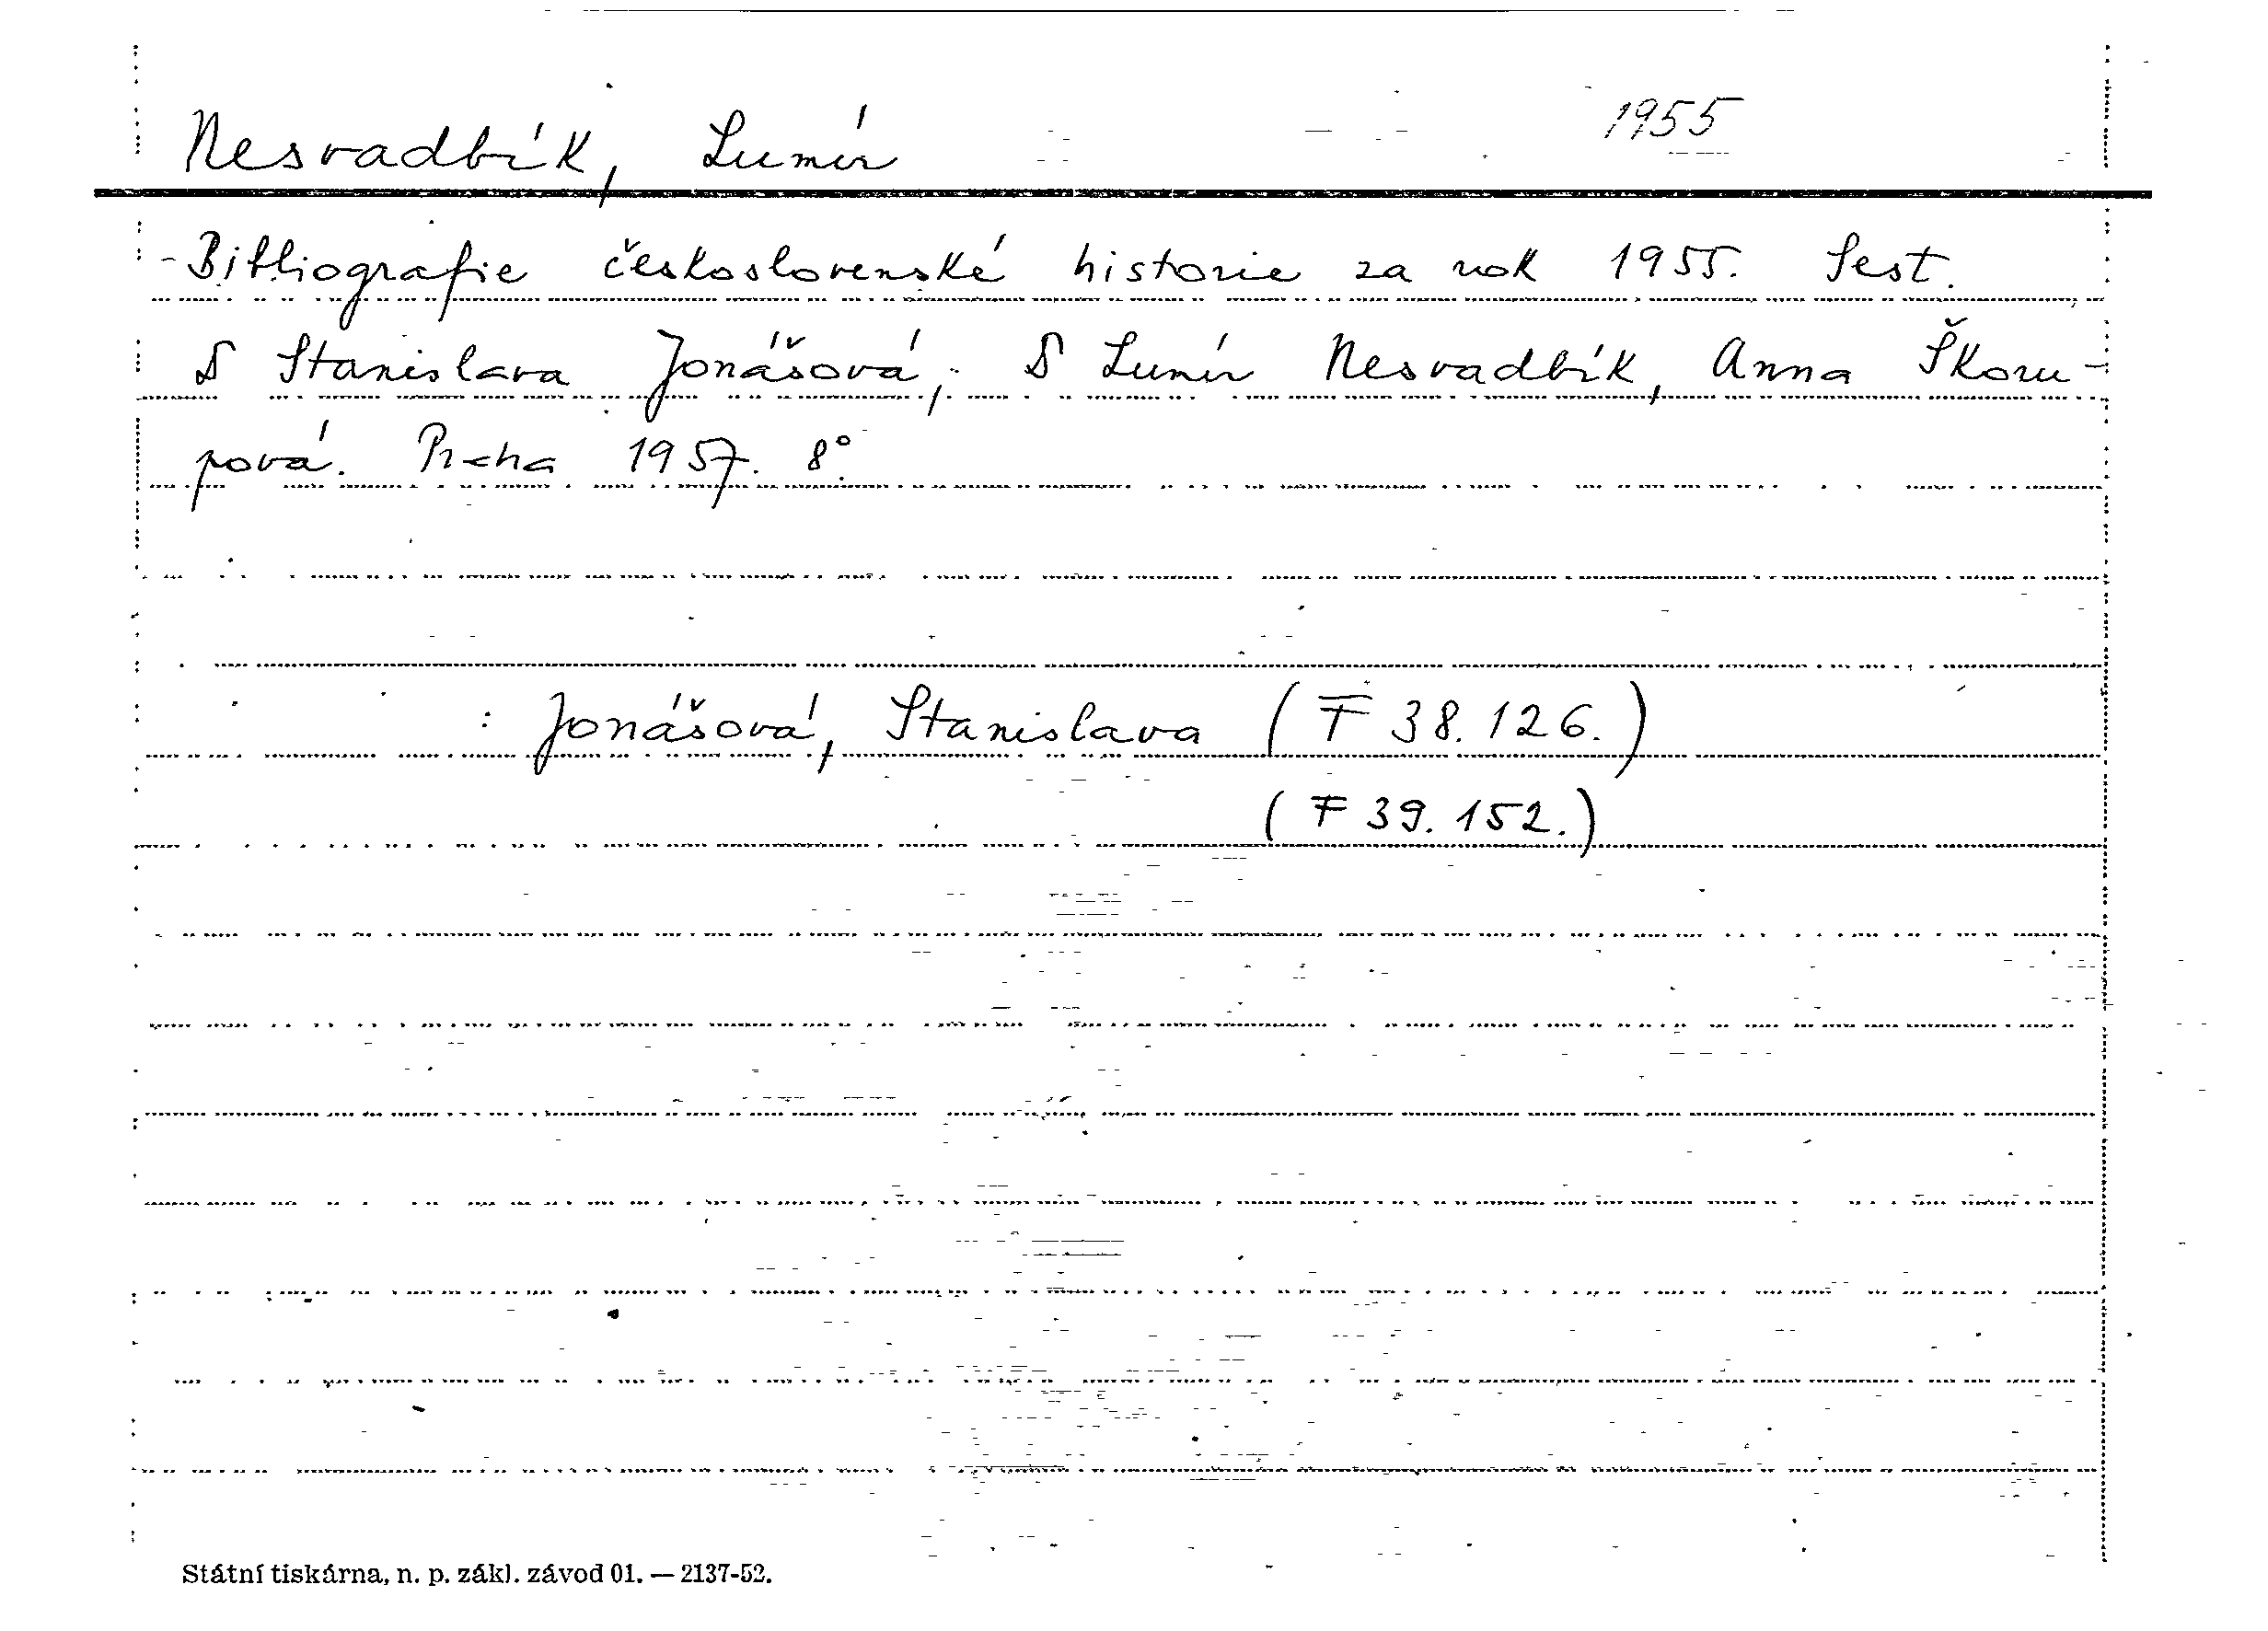 Nesvadbík, Lumír 1955
- Bibliografie československé historie za rok 1955. Sest.
S Stanislava Jonášová, S Lumír Nesvadbík, Anna Škoru-
pová. Praha 1957. 8°.
: Jonášová, Stanislava (F 38.126.)
(F 39.152.)
Státní tiskárna, n. p. zákl. závod 01. — 2137-52.